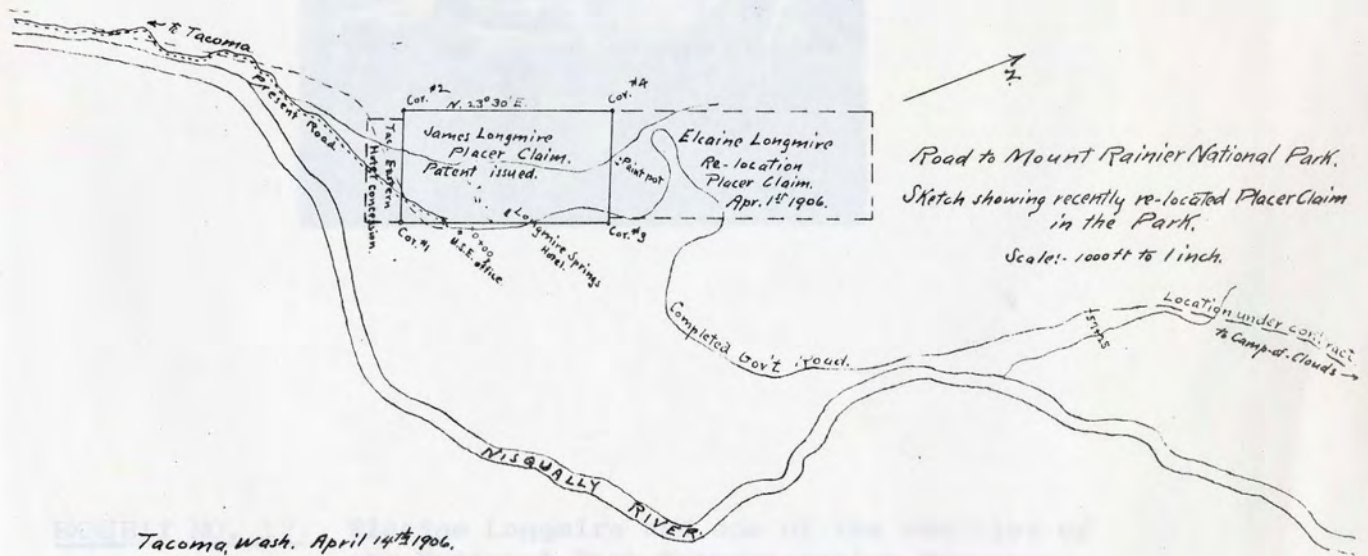 to Tacoma
Present Road
Cor. #2
N. 23° 30' E.
Cor. #4
James Longmire
Placer Claim.
Patent issued.
Tac. Eastern
Hotel concession.
Paint pot
Elcaine Longmire
Re-location
Placer Claim.
Apr. 1st 1906.
Cor. #1
U.S.E. office
0+00
Longmire Springs
Hotel.
Cor. #3
Road to Mount Rainier National Park.
Sketch showing recently re-located Placer Claim
in the Park.
Scale:- 1000 ft to 1 inch.
Completed Gov't Road.
Location under contract
to Camp-of-Clouds
NISQUALLY RIVER
Tacoma, Wash. April 14th 1906.